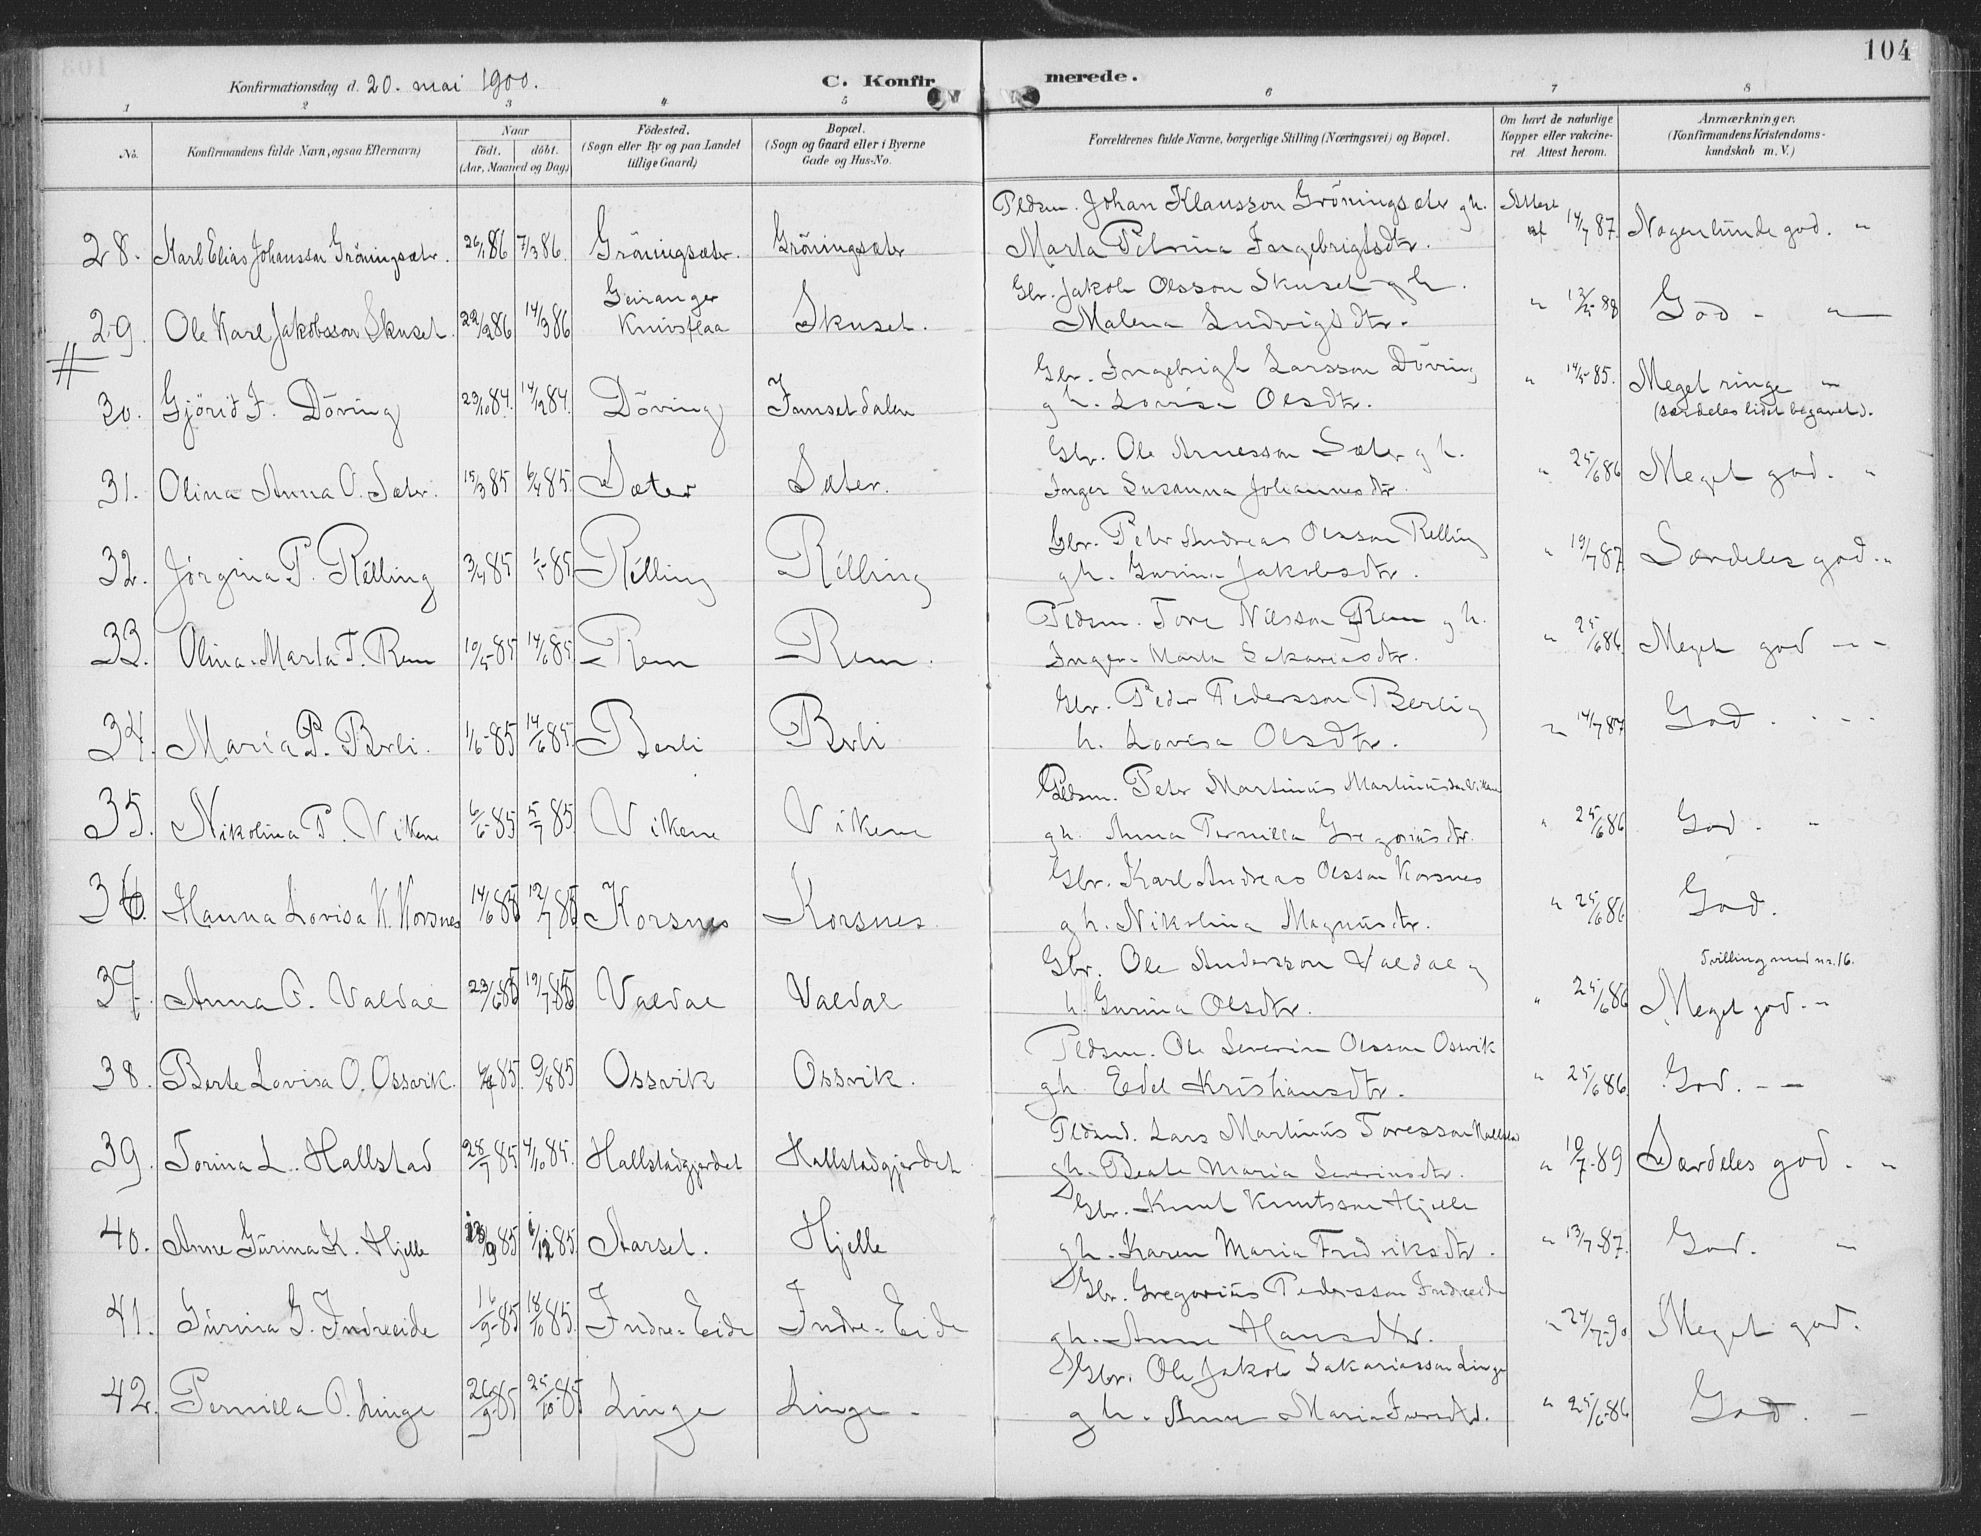 104
Konfirmationsdag d. 20. mai 1900.
C. Konfirmerede.
1 2 3 4 5 6 7 8
No.
Konfirmandens fulde Navn, ogsaa Efternavn)
Naar
födt. döbt.
(Aar, Maaned og Dag)
Födested.
(Sogn eller By og paa Landet
tillige Gaard)
Bopæl.
(Sogn og Gaard eller i Byerne
Gade og Hus-No.
Forældrenes fulde Navne, borgerlige Stilling (Næringsvei) og Bopæl.
Om havt de naturlige
Kopper eller vakcine-
ret. Attest herom.
Anmærkninger.
(Konfirmandens Kristendoms-
kundskab m. V.)
Pldsm. Johan Klausson Gröningsæter g. h.
28. Karl Elias Johansson Gröningsæter. 26/1 86 7/3 86. Gröningsæter. Gröningsæter Marta Petrina Ingebrigtsdtr. Attest af 14/7 87. Nogenlunde god. "
Gbr. Jakob Olsson Skuset g h.
29. Ole Karl Jakobsson Skuset. 22/2 86 14/3 86 Geiranger Knivsflaa Skuset. Malena Ludvigsdtr. " God - "
Gbr. Ingebrigt Larsson Döving
30. Gjörid I. Döving 23/10 84. 14/12 84. Döving g h. Lovisa Olsdtr. " 14/5-85. Meget ringe "
(særdeles lidet begavet).
Gbr. Ole Arnesson Sæter g h.
31. Olina Anna O. Sæter. 15/3 85 6/4 85. Sæter Sæter. Inger Susanna Johannesdtr. " 25/6 86 Meget god. "
Gbr. Peter Andreas Olsson Relling
32. Jörgina P. Relling 3/4 85 Relling Relling g h. Gurina Jakobsdtr. " 19/7 87. Særdeles god. "
Pldsm. Tore Nilsson Rem g h.
33. Olina Marta T. Rem 10/5-85 14/6 85 Rem Rem. Inger Marta Sakariasdtr. " 25/6 86. Meget god - -
Gbr. Peder Pedersson Berli g
34. Maria P. Berli. 1/6-85 14/6 85. Berli Berli h. Lovisa Olsdtr. " 14/7 87 God. - - -
Pldsm. Peter Martinus Martinusson Viken
35. Nikolina P. Vikene 6/6-85 5/7 85. Vikene Vikene g h. Anna Pernilla Gregoriusdtr. " 25/6 86 God. "
Gbr. Karl Andreas Olsson Korsnes
36. Hanna Lovisa K. Korsnes 14/6 85 12/7 85 Korsnes Korsnes. g h. Nikolina Magnusdtr. " 25/6 86 God.
Gbr. Ole Andersson Valdal g
Tvilling med nr. 16.
37. Anna O. Valdal 23/6 85 19/7 85 Valdal Valdal h. Gurina Olsdtr. " 25/6 86 Meget god. "
Pldsm. Ole Severin Olsson Ossvik
38. Berte Lovisa O. Ossvik. 85. 9/8 85 Ossvik Ossvik. g h Edel Kristiansdtr. " 25/6 86. God. - -
Pldsmd. Lars Martinus Toresson Hallstad
39. Torina L. Hallstad 28/7 85 4/10 85. Hallstadgjerdet Hallstadgjerdet g h. Beate Maria Severinsdtr. " 10/7-89 Særdeles god. "
Gbr. Knut Knutsson Hjelle
40. Anne Gurina K. Hjelle 85 85. Aarset. Hjelle g h. Karen Maria Fredriksdtr. " 13/7-87. God. "
Gbr. Gregorius Pedersson Indreeide
41. Gurina G. Indreeide 16/9-85 18/10 85. Indre-Eide Indre-Eide g h. Anne Hansdtr. " 24/7-90 Meget god.
Gbr. Ole Jakob Sakariasson Linge
42. Pernilla O. Linge 26/9-85 25/10-85 Linge Linge - g h. Anne Maria " 25/6-86 God. -